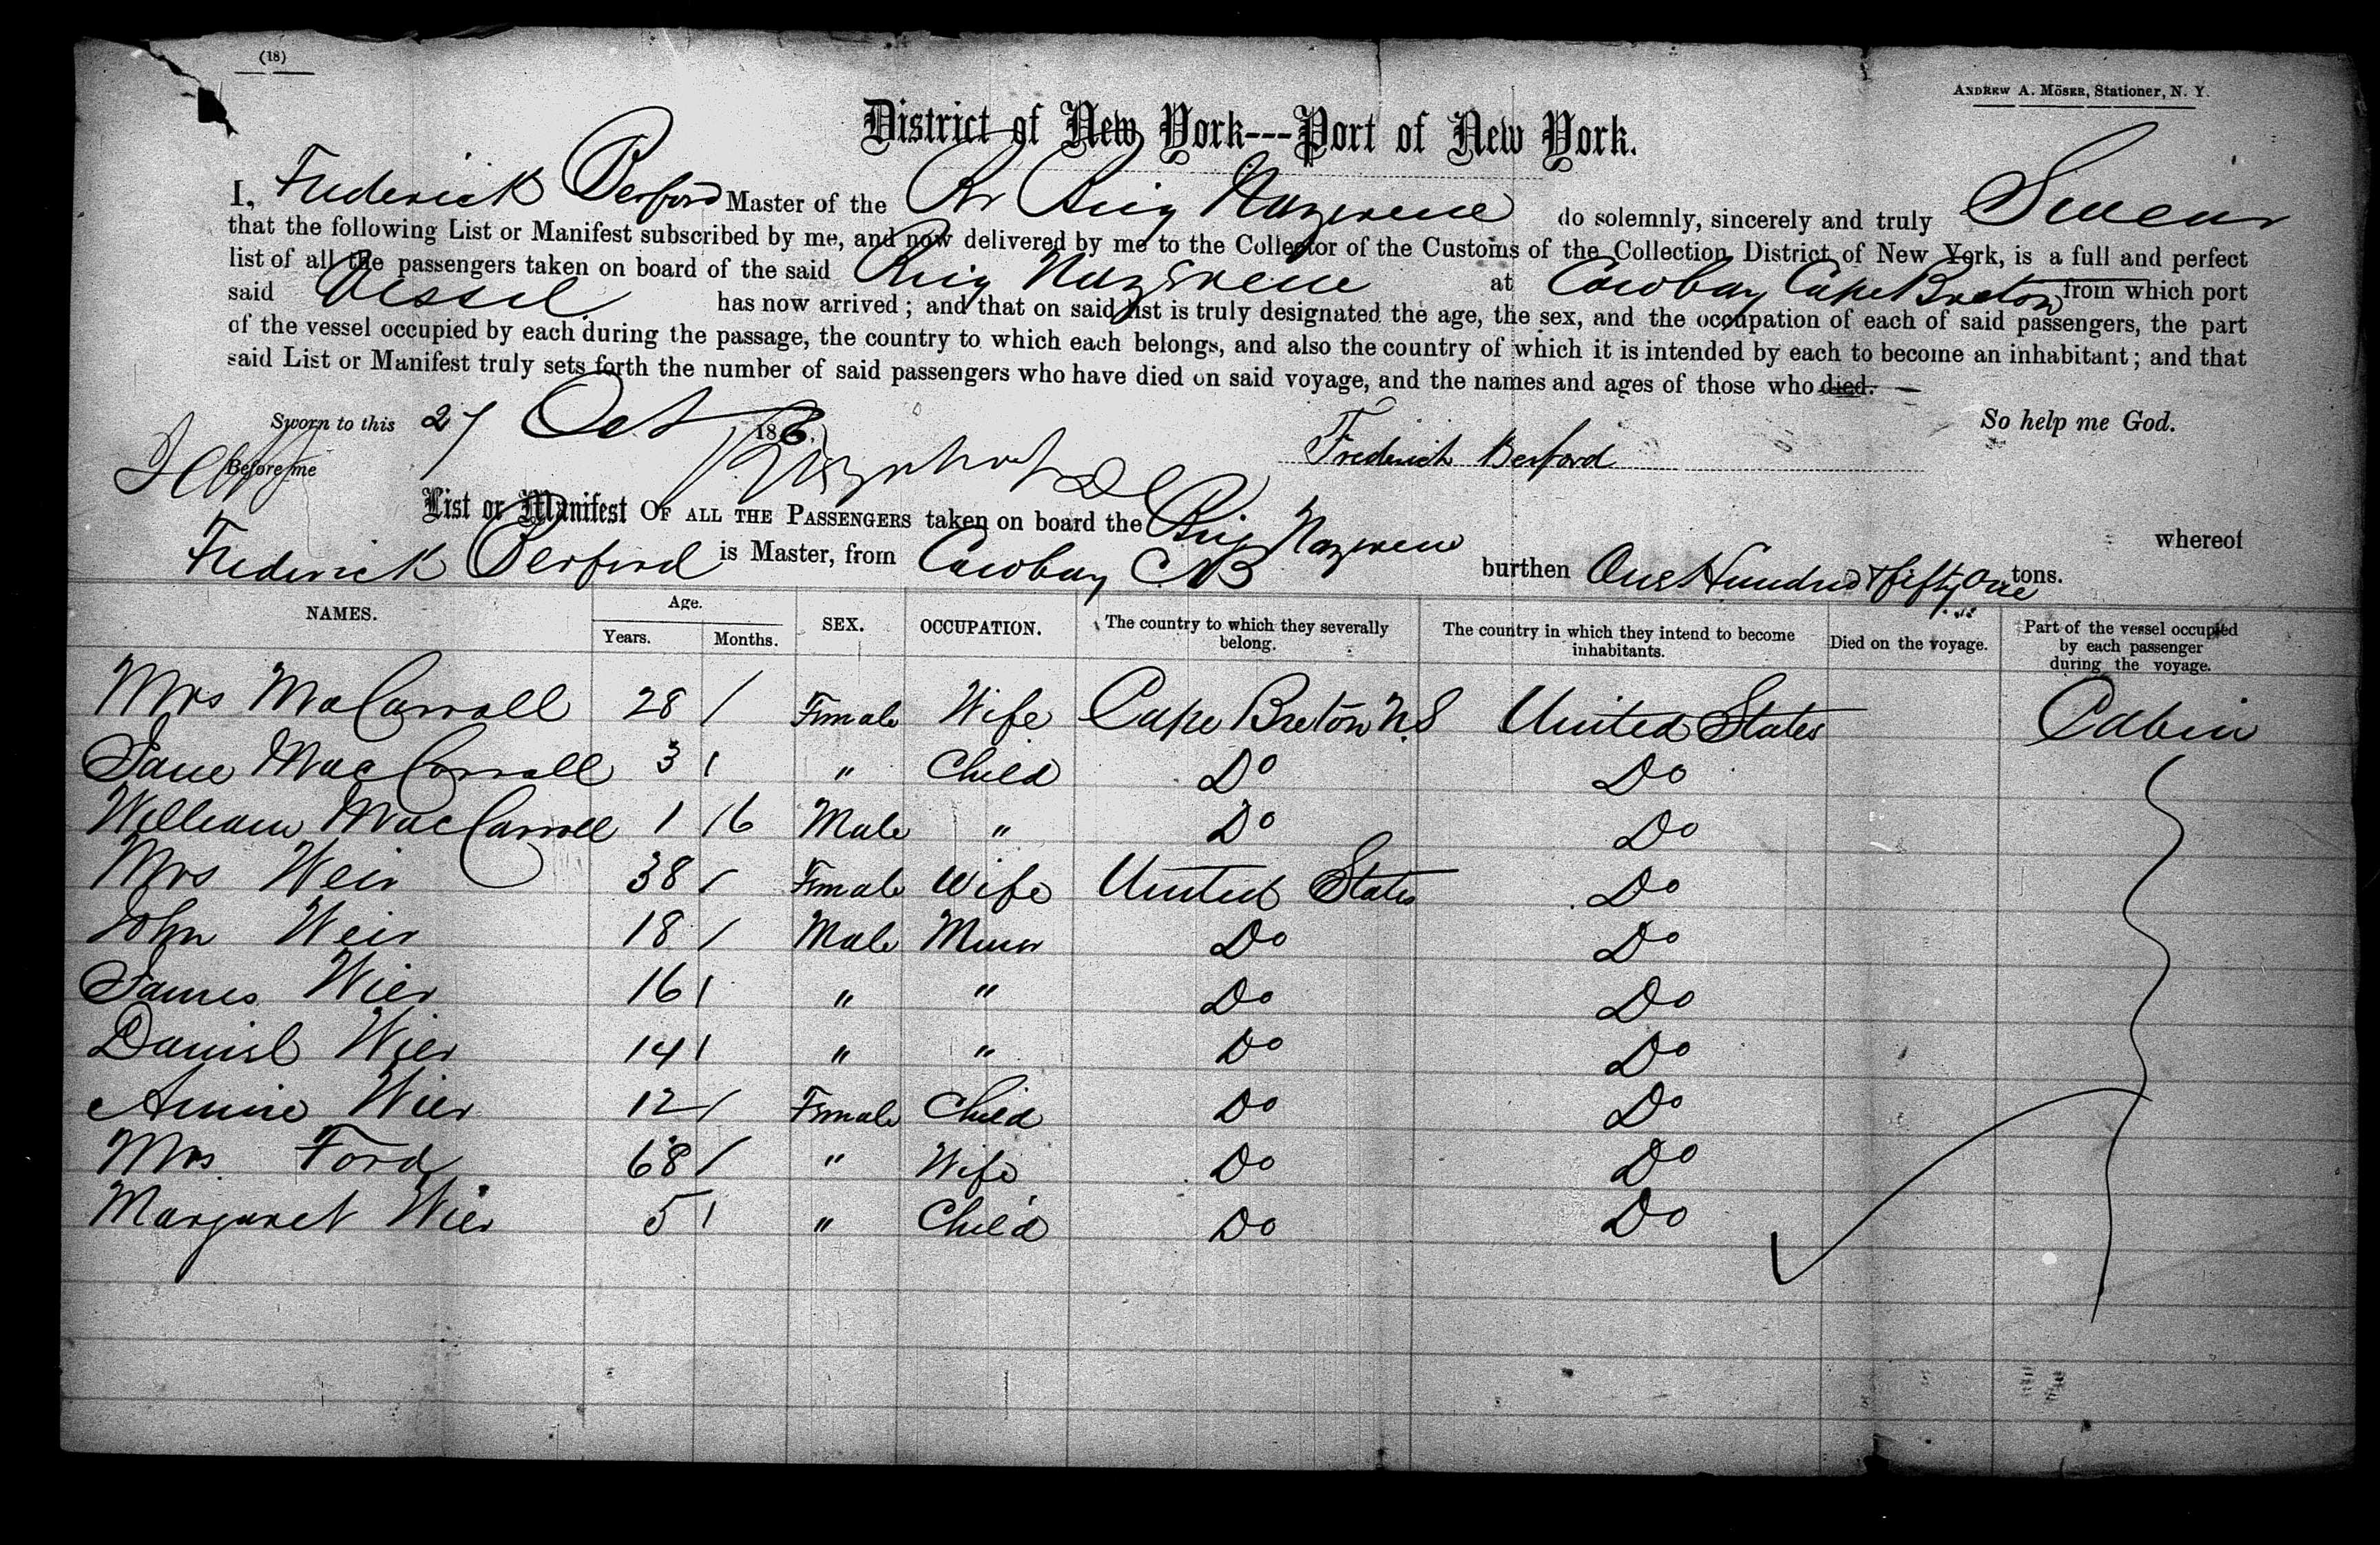 (18)
ANDREW A. MÖSER, Stationer, N. Y.
District of New York---Port of New York.
I, Frederick Berford Master of the Br Brig Nazerene do solemnly, sincerely and truly Swear
that the following List or Manifest subscribed by me, and now delivered by me to the Collector of the Customs of the Collection District of New York, is a full and perfect
list of all the passengers taken on board of the said Brig Nazerene at Cowbay Cape Breton from which port
said Vessel has now arrived; and that on said list is truly designated the age, the sex, and the occupation of each of said passengers, the part
of the vessel occupied by each during the passage, the country to which each belongs, and also the country of which it is intended by each to become an inhabitant; and that
said List or Manifest truly sets forth the number of said passengers who have died on said voyage, and the names and ages of those who died.
Sworn to this 27 Oct 186 So help me God.
Before me Frederich Berford
List or Manifest OF ALL THE PASSENGERS taken on board the Brig Nazerene whereof
Frederick Berford is Master, from Cowbay C.B burthen One Hundred & fifty One tons.
NAMES. Age. Years. Months. SEX. OCCUPATION. The country to which they severally belong. The country in which they intend to become inhabitants. Died on the voyage. Part of the vessel occupied by each passenger during the voyage.
Mrs MaCarroll 28 / Female Wife Cape Breton N.S United States Cabin
Jane MacCarroll 3 / " Child Do Do
William MacCarroll 1 / 6 Male " Do Do
Mrs Weir 38 / Female Wife United States Do
John Weir 18 / Male Minor Do Do
James Wier 16 / " " Do Do
Daniel Wier 14 / " " Do Do
Annie Wier 12 / Female Child Do Do
Mrs Ford 68 / " Wife Do Do
Margaret Wier 5 / " Child Do Do